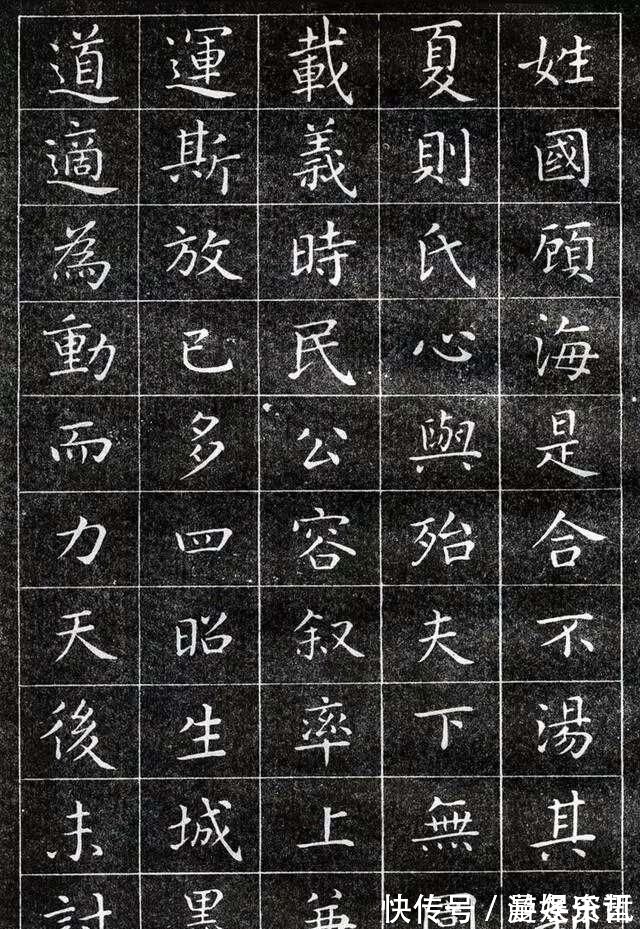 姓國顧海是合不湯其
夏則氏心與殆夫下無
載義時民公容叙率上
運斯放已多四昭生城
道適為動而力天後未討
快传号／